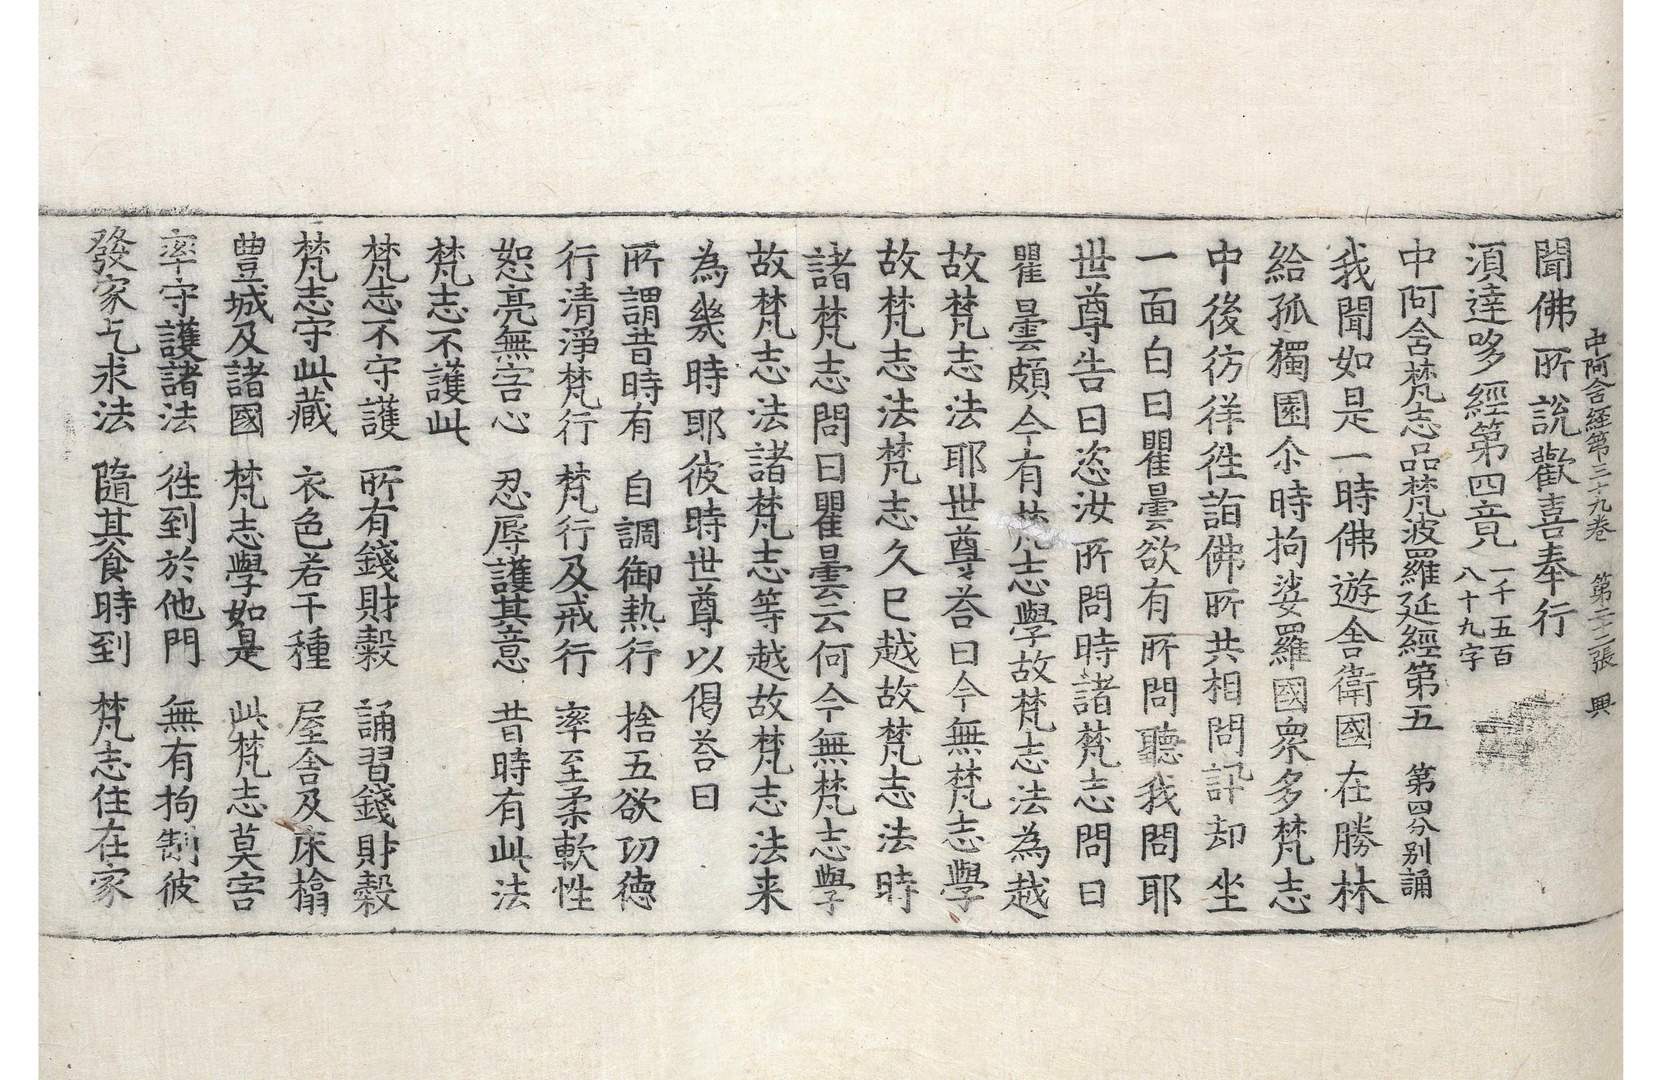 中阿含經第三十九卷　第二十二張　興
聞佛所說歡喜奉行
須達哆經第四竟　一千五百八十九字
中阿含梵志品梵波羅延經第五　第四分別誦
我聞如是一時佛遊舍衛國在勝林
給孤獨園尒時拘娑羅國衆多梵志
中後彷徉徃詣佛所共相問訊却坐
一面白曰瞿曇欲有所問聽我問耶
世尊告曰恣汝所問時諸梵志問曰
瞿曇頗今有梵志學故梵志法為越
故梵志法耶世尊荅曰今無梵志學
故梵志法梵志久已越故梵志法時
諸梵志問曰瞿曇云何今無梵志學
故梵志法諸梵志等越故梵志法来
為幾時耶彼時世尊以偈荅曰
所謂昔時有　自調御熱行　捨五欲功德
行清淨梵行　梵行及戒行　率至柔軟性
恕亮無害心　忍辱護其意　昔時有此法
梵志不護此
梵志不守護　所有錢財穀　誦習錢財穀
梵志守此藏　衣色若干種　屋舍及床榻
豊城及諸國　梵志學如是　此梵志莫害
率守護諸法　徃到於他門　無有拘制彼
發家乞求法　隨其食時到　梵志住在家